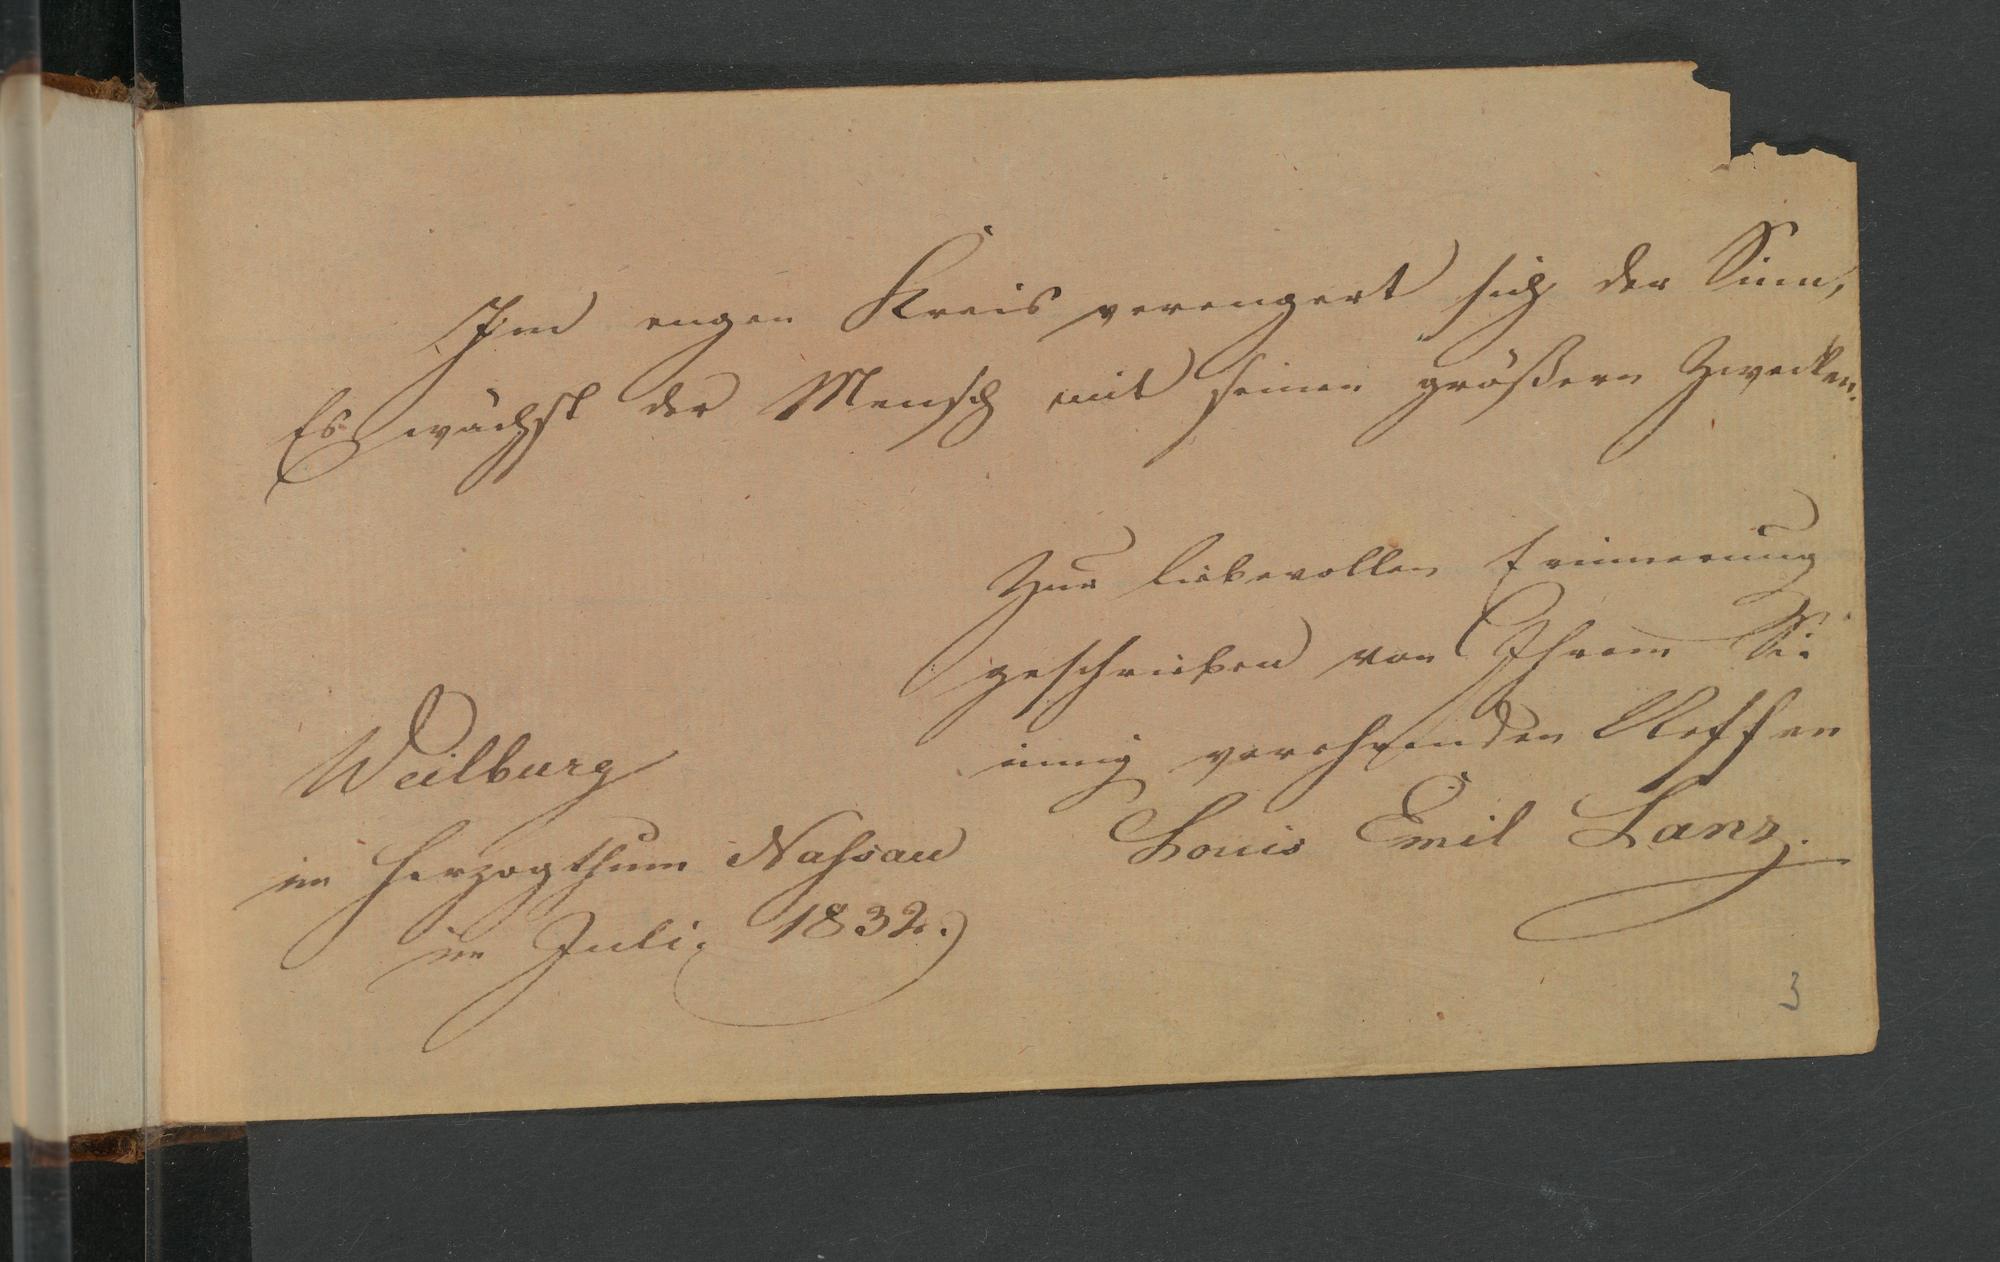 Im engen Kreis verengert sich der Sinn,
Es wächst der Mensch mit seinen größern Zwecken.
Zur liebevollen Erinnerung
geschrieben von Ihrem Sie
innig verehrenden Neffen
Louis Emil Lanz.
Weilburg
im Herzogthum Nassau
im Juli 1832.
3